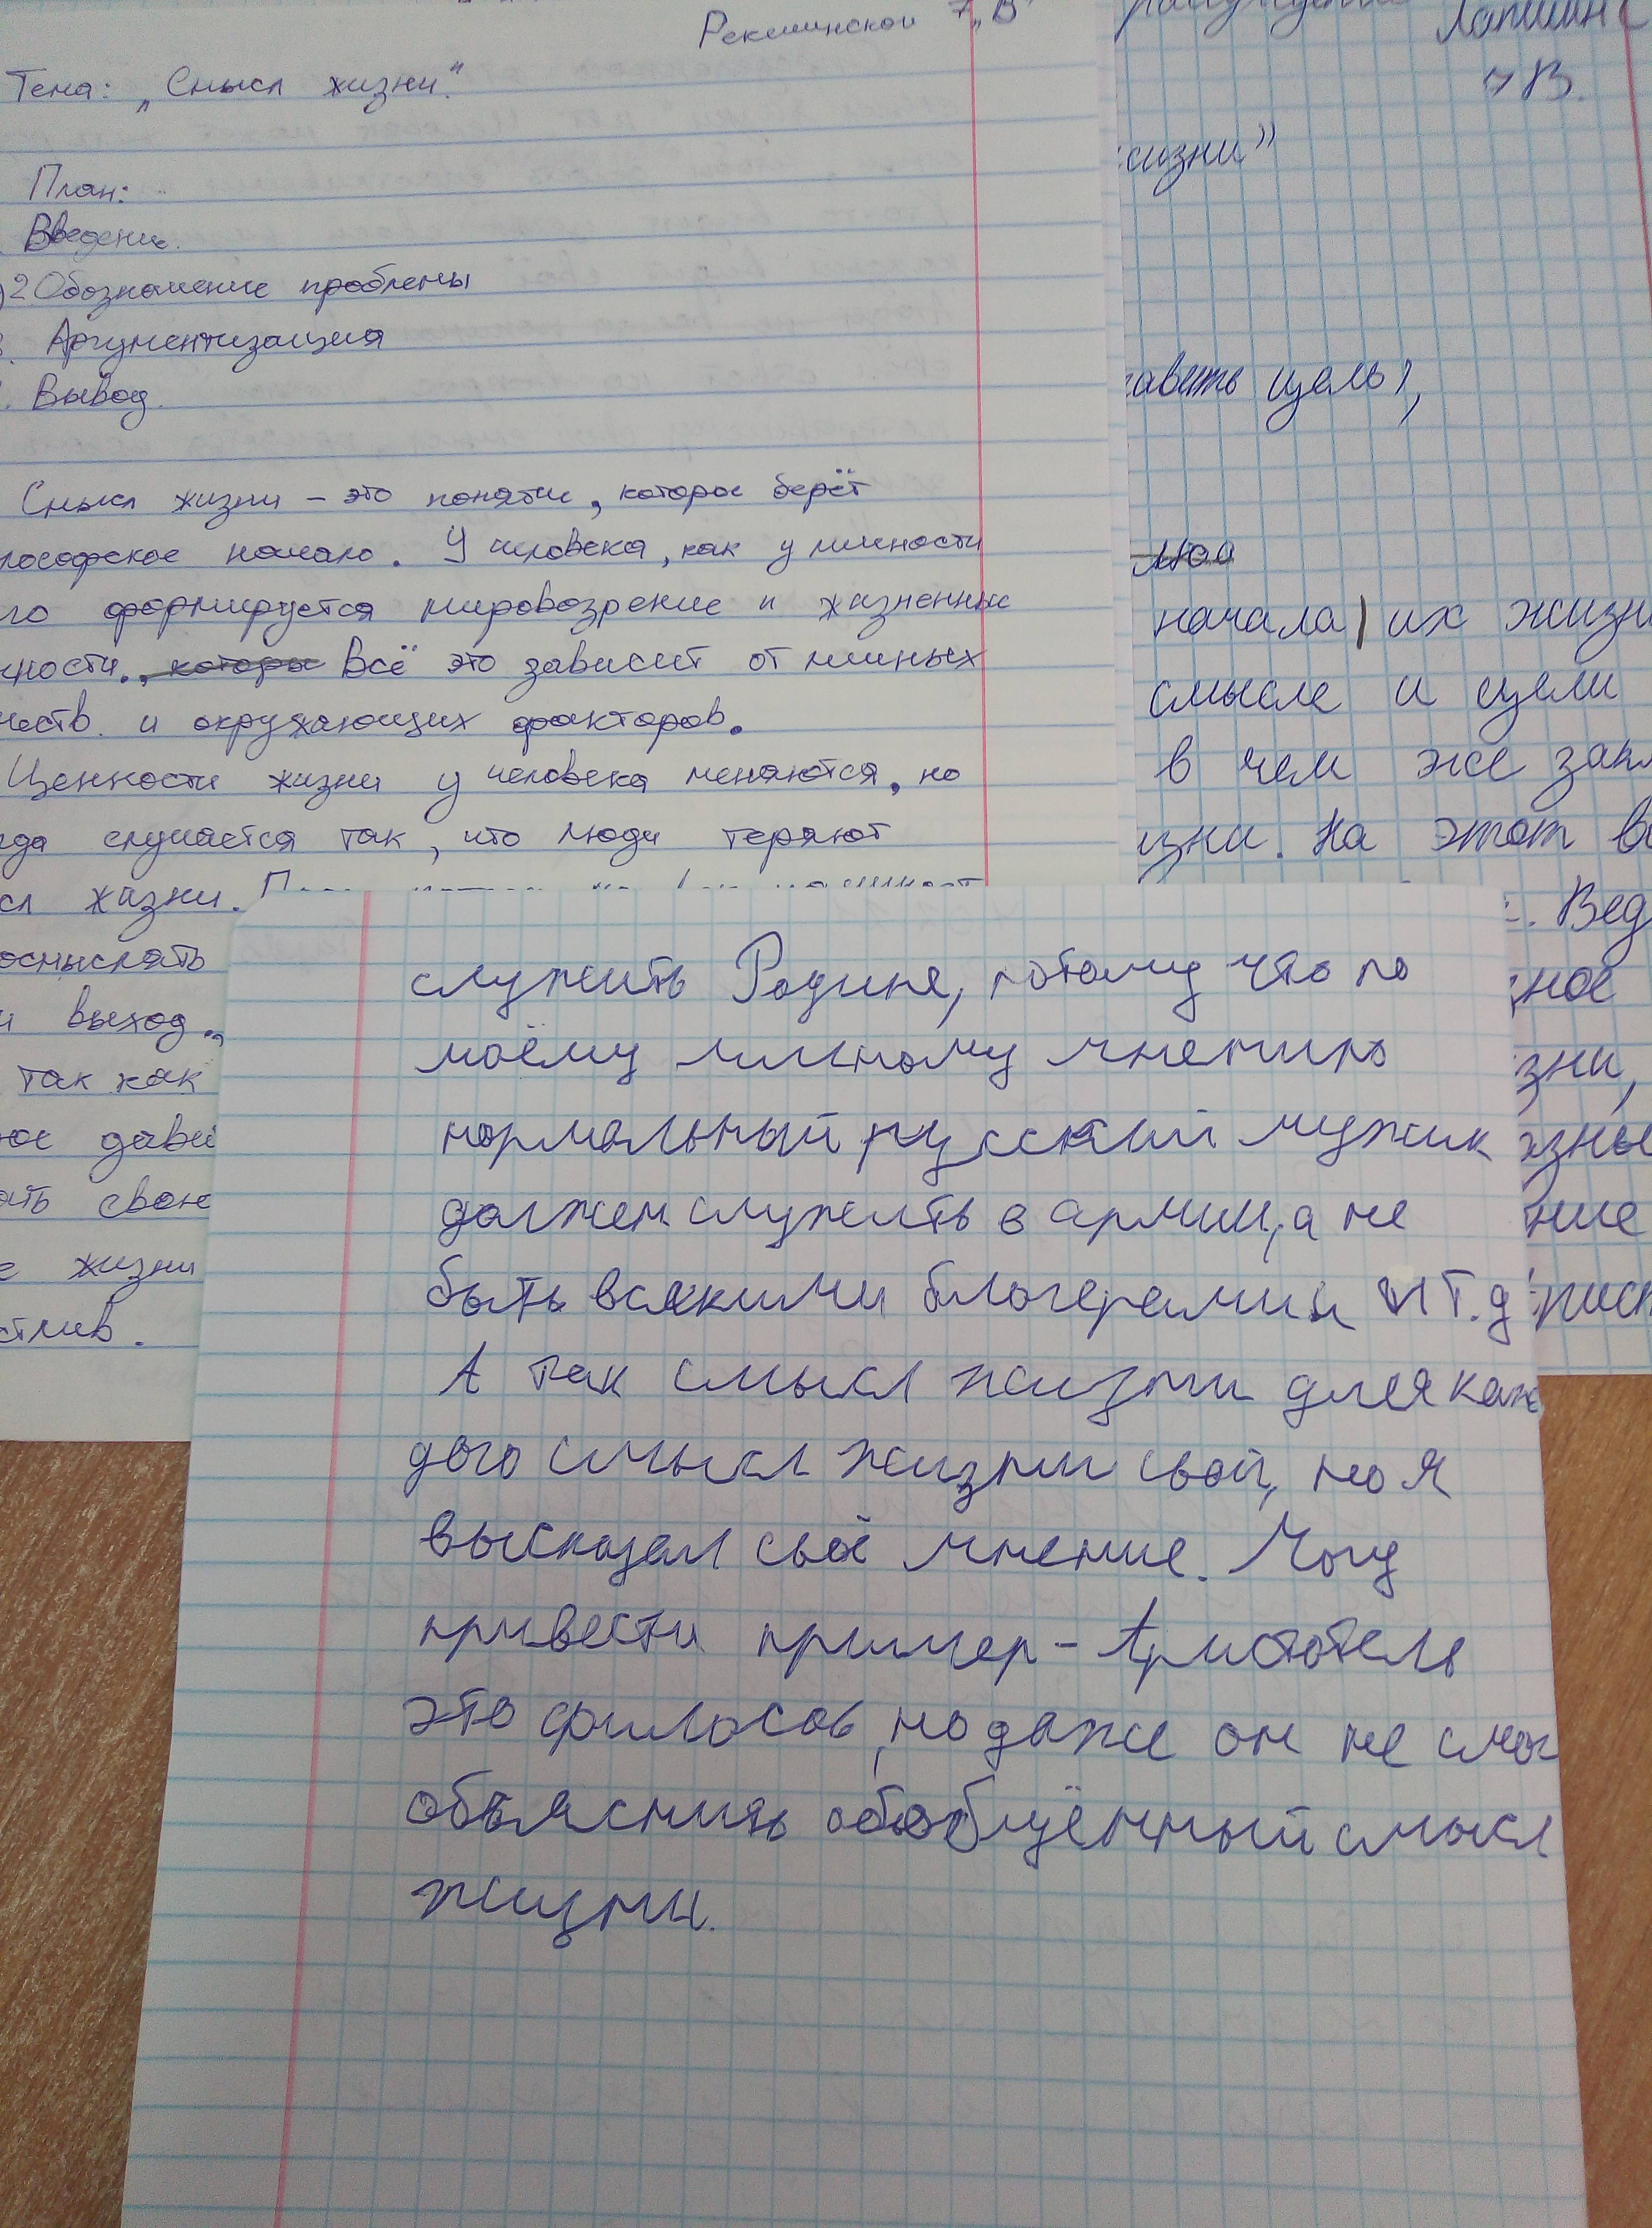 Рекшинской 7 „В"
Тема: „Смысл жизни".
План:
Введение.
2 Обозначение проблемы
3. Аргументизация
. Вывод.
Смысл жизни – это понятие, которое берёт
лософское начало. У человека, как у личности
го формируется мировозрение и жизненные
ности. , которы Всё это зависит от личных
честв. и окружающих факторов.
Ценности жизни у человека меняются, но
гда случается так, что люди теряют
сл жизни.
осмыслять
и выход.
так как
ое давай
ать свою
е жизни
стлив.
Лапшин
7В.
жизни"
тавить цель),
моо
начала их жизни
смысле и цели
в чем же закл
изни. На этот во
. Вед
ное
зни,
ние
служить Родине, потому что по
моёму личному мнению
нормальный русский мужик
должен служить в армии, а не
быть всякими блогерами и т.д
А так смысл жизни для каж
дого смысл жизни свой, но я
высказал своё мнение. Могу
привести пример – Аристотель
это философ, но даже он не смог
объяснить обобщённый смысл
жизни.